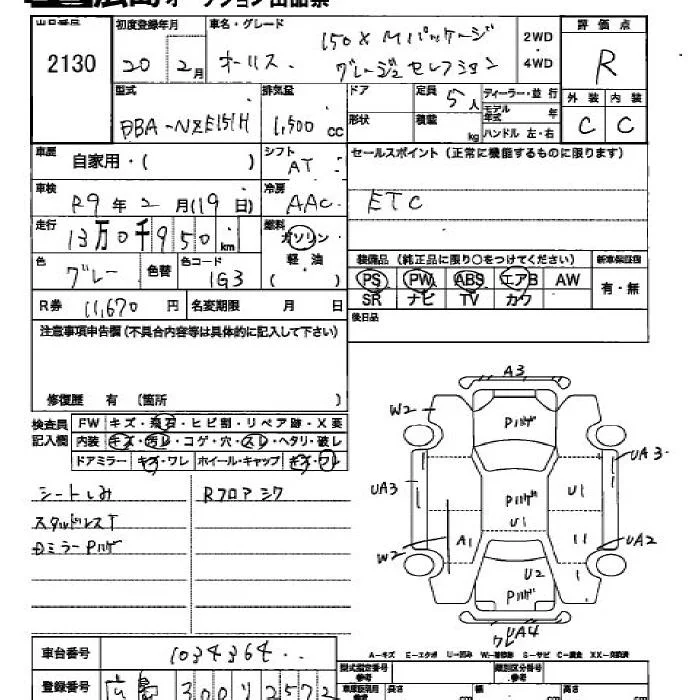 広島オークション出品票
出品番号 初度登録年月 車名・グレード 評価点
2130 20 2月 オーリス 150X Mパッケージ 2WD R
グレージュセレクション 4WD
型式 排気量 ドア 定員 5人 ディーラー・並行 外装 内装
DBA-NZE151H 1,500cc 形状 積載 kg モデル年式 年 C C
ハンドル 左・右
車歴 自家用・( ) シフト AT セールスポイント(正常に機能するものに限ります)
車検 R9年2月(19日) 冷房 AAC ETC
走行 13万0千950km 燃料 ガソリン
軽油
( )
色 グレー 色替 色コード 1G3 装備品(純正品に限り○をつけてください) 新車保証書
PS PW ABS エアB AW 有・無
R券 11,670円 名変期限 月 日 SR ナビ TV カワ
注意事項申告欄(不具合内容等は具体的に記入して下さい) 後日品
修復歴 有(箇所 )
検査員記入欄 FW キズ・飛石・ヒビ割・リペア跡・X要
内装 キズ・汚レ・コゲ・穴・スレ・ヘタリ・破レ
ドアミラー キズ・ワレ ホイール・キャップ キズ・ワレ
シートしみ Rフロアシワ
スタッドレスT
Dミラーハゲ
A3
W2
Pハゲ
UA3
UA3 Pハゲ U1
U1
W2 A1 UA2
U2
Pハゲ
UA4
ワレ
A-キズ E-エクボ U-凹み W-補修跡 S-サビ C-腐食 XX-交換済
車台番号 1034364 型式指定番号 参考 類別区分番号 参考
登録番号 広島 300 ソ 2572 長さ cm 幅 cm 高さ cm